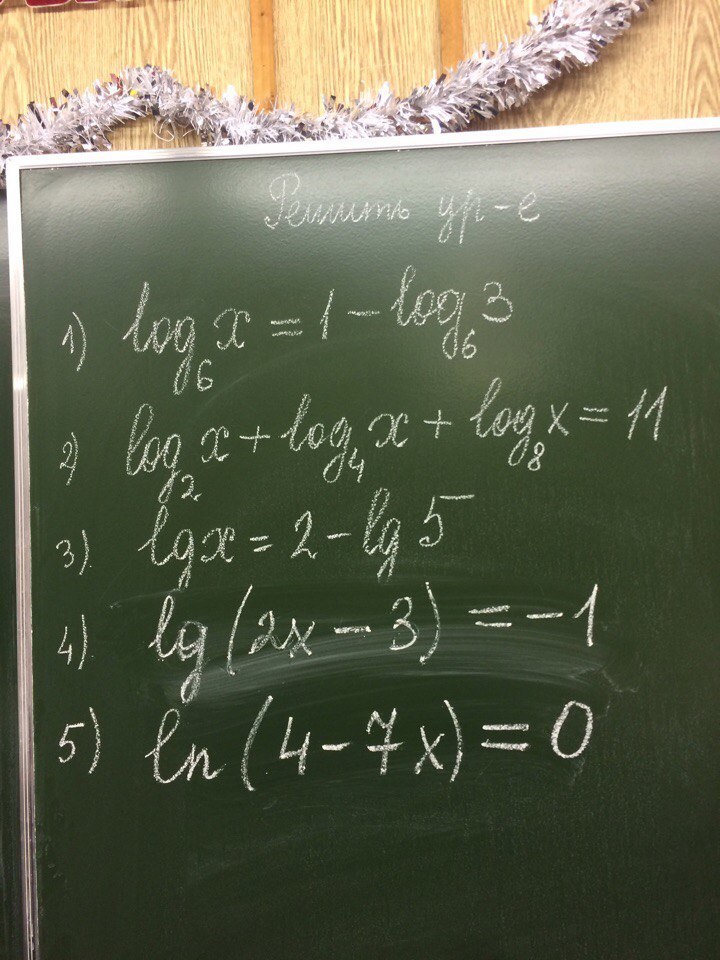 Решить ур-е
1) log₆x = 1 - log₆3
2) log₂x + log₄x + log₈x = 11
3). lgx = 2 - lg5
4). lg(2x - 3) = -1
5) ln(4 - 7x) = 0